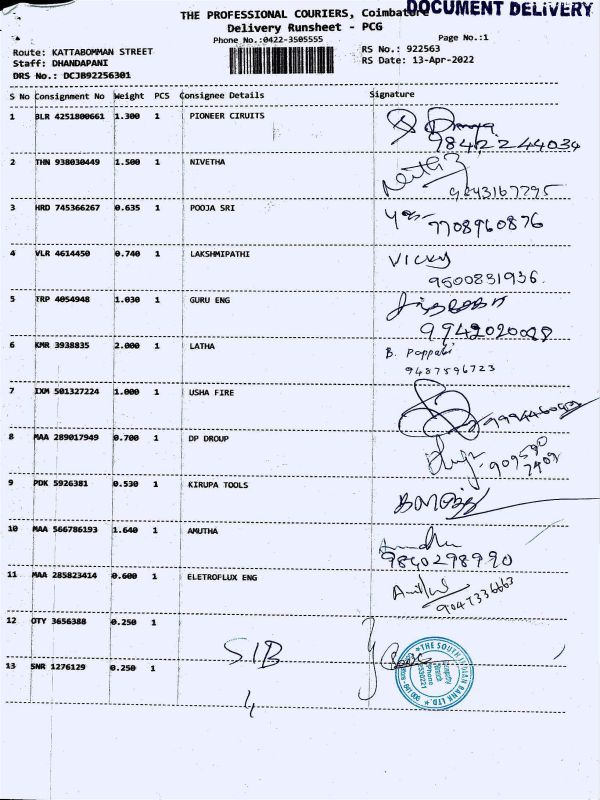 DOCUMENT DELIVERY
THE PROFESSIONAL COURIERS, Coimbatore
Delivery Runsheet - PCG
Phone No.:0422-3505555
Page No.:1
Route: KATTABOMMAN STREET
RS No.: 922563
Staff: DHANDAPANI
RS Date: 13-Apr-2022
DRS No.: DCJB92256301
S No Consignment No Weight PCS Consignee Details Signature
1 BLR 4251800661 1.300 1 PIONEER CIRUITS
9842244034
2 THN 938030449 1.500 1 NIVETHA
3 HRD 745366267 0.635 1 POOJA SRI
7708960876
4 VLR 4614450 0.740 1 LAKSHMIPATHI VICKY
9500831936
5 TRP 4054948 1.030 1 GURU ENG
6 KMR 3938835 2.000 1 LATHA B. Pappabi
9487596723
7 IXM 501327224 1.000 1 USHA FIRE
8 MAA 289017949 0.700 1 DP DROUP
9 PDK 5926381 0.530 1 KIRUPA TOOLS
10 MAA 566786193 1.640 1 AMUTHA
9840298990
11 MAA 285823414 0.600 1 ELETROFLUX ENG
9047336663
12 OTY 3656388 0.250 1
SIB
13 SNR 1276129 0.250 1
4
THE SOUTH INDIAN BANK LTD.